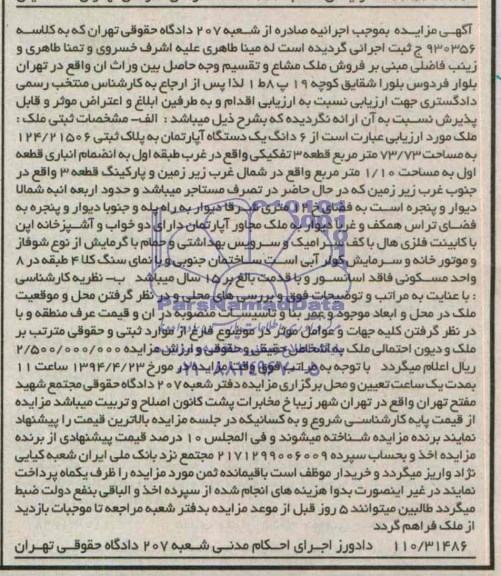 آگهی مزایده بموجب اجرائیه صادره از شعبه ۲۰۷ دادگاه حقوقی تهران که به کلاسه
۹۳۰۳۵۶ ج ثبت اجرائی گردیده است له مینا طاهری علیه اشرف خسروی و تمنا طاهری و
زینب فاضلی مبنی بر فروش ملک مشاع و تقسیم وجه حاصل بین وراث ان واقع در تهران
بلوار فردوس بلورا شقایق کوچه ۱۹ پ ۸ ط ۱ لذا پس از ارجاع به کارشناس منتخب رسمی
دادگستری جهت ارزیابی نسبت به ارزیابی اقدام و به طرفین ابلاغ و اعتراض موثر و قابل
پذیرش نسبت به آن ارائه نگردیده که بشرح ذیل میباشد : الف- مشخصات ثبتی ملک :
ملک مورد ارزیابی عبارت است از ۶ دانگ یک دستگاه آپارتمان به پلاک ثبتی ۱۲۴/۲۱۵۰۶
به مساحت ۷۳/۷۳ متر مربع قطعه ۳ تفکیکی واقع در غرب طبقه اول به انضمام انباری قطعه
اول به مساحت ۱/۱۰ متر مربع واقع در شمال غرب زیر زمین و پارکینگ قطعه ۳ واقع در
جنوب غرب زیر زمین که در حال حاضر در تصرف مستاجر میباشد و حدود اربعه انبه شمالا
دیوار و پنجره است به فضای متری شرقا دیوار به راه پله و جنوبا دیوار و پنجره به
فضای تراس همکف و غربا دیوار به ملک مجاور آپارتمان دارای دو خواب و آشپزخانه اپن
با کابینت فلزی هال با کف سرامیک و سرویس بهداشتی و حمام با گرمایش از نوع شوفاژ
و موتور خانه و سرمایش کولر آبی است ساختمان جنوبی و با نمای سنگ کلا ۴ طبقه در ۸
واحد مسکونی فاقد آسانسور و با قدمت بالغ بر ۱۵ سال میباشد ب- نظریه کارشناسی
: با عنایت به مراتب و توضیحات فوق و بررسی های محلی و در نظر گرفتن محل و موقعیت
ملک در محل و ابعاد موجود و عمر بنا و تاسیسات منصوبه در ان و قیمت عرف منطقه و با
در نظر گرفتن کلیه جهات و عوامل موثر در موضوع فارغ از موارد ثبتی و حقوقی مترتب بر
ملک و دیون احتمالی ملک به اشخاص حقیقی و حقوقی و ارزش مزایده ۲/۵۰۰/۰۰۰/۰۰۰
ریال اعلام میگردد با توجه به مراتب فوق وقت مزایده در مورخ ۱۳۹۴/۴/۲۳ ساعت ۱۱
بمدت یک ساعت تعیین و محل برگزاری مزایده دفتر شعبه ۲۰۷ دادگاه حقوقی مجتمع شهید
مفتح تهران واقع در تهران شهر زیبا خ مخابرات پشت کانون اصلاح و تربیت میباشد مزایده
از قیمت پایه کارشناسی شروع و به کسانیکه در جلسه مزایده بالاترین قیمت را پیشنهاد
نمایند برنده مزایده شناخته میشوند و فی المجلس ۱۰ درصد قیمت پیشنهادی از برنده
مزایده اخذ و بحساب سپرده ۲۱۷۱۲۹۹۰۰۶۰۰۹ مجتمع نزد بانک ملی ایران شعبه کیایی
نژاد واریز میگردد و خریدار موظف است باقیمانده ثمن مورد مزایده را ظرف یکماه پرداخت
نمایند در غیر اینصورت بدوا هزینه های انجام شده از سپرده اخذ و الباقی بنفع دولت ضبط
میگردد طالبین میتوانند ۵ روز قبل از موعد مزایده بدفتر شعبه مراجعه تا موجبات بازدید
از ملک فراهم گردد
۱۱۰/۳۱۴۸۶ دادورز اجرای احکام مدنی شعبه ۲۰۷ دادگاه حقوقی تهران
ParsNamadData